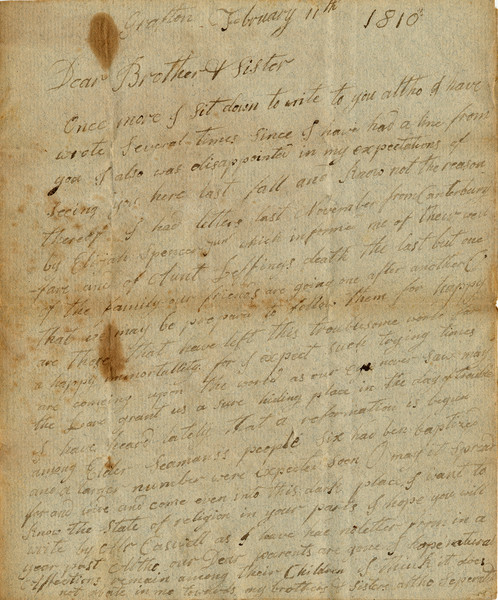 Grafton February 11th 1810
Dear Brother & Sister
Once more I sit down to write to you altho I have
wrote Several times Since I have had a line from
you I also was disappointed in my expectations of
seeing you here last fall and know not the reason
thereof I had letters last November from Canterbury
by Elijah Spencer which informs me of their well
fare and of Aunt death the last but one
of the Family our friends are going one after another O
that we may be prepared to follow them for happy
are those that have left this troublesome world for
a happy immortallity for I expect such trying times
are comeing upon the world as our never saw may
the Lord grant us a sure hiding place in the day of trouble
I have heard lately that a reformation is begun
among Elder Seamans's people Six had been baptized
and a larger number were expected soon O may it spread
far and wide and come even into this dark place I want to
know the State of religion in your parts I hope you will
write by Mr Caswell as I have had no letter from in a
year past Altho our Dear parents are gone I hope natural
affections remain among their Children I think it does
not abate in me towards my brothers & sisters altho seperated